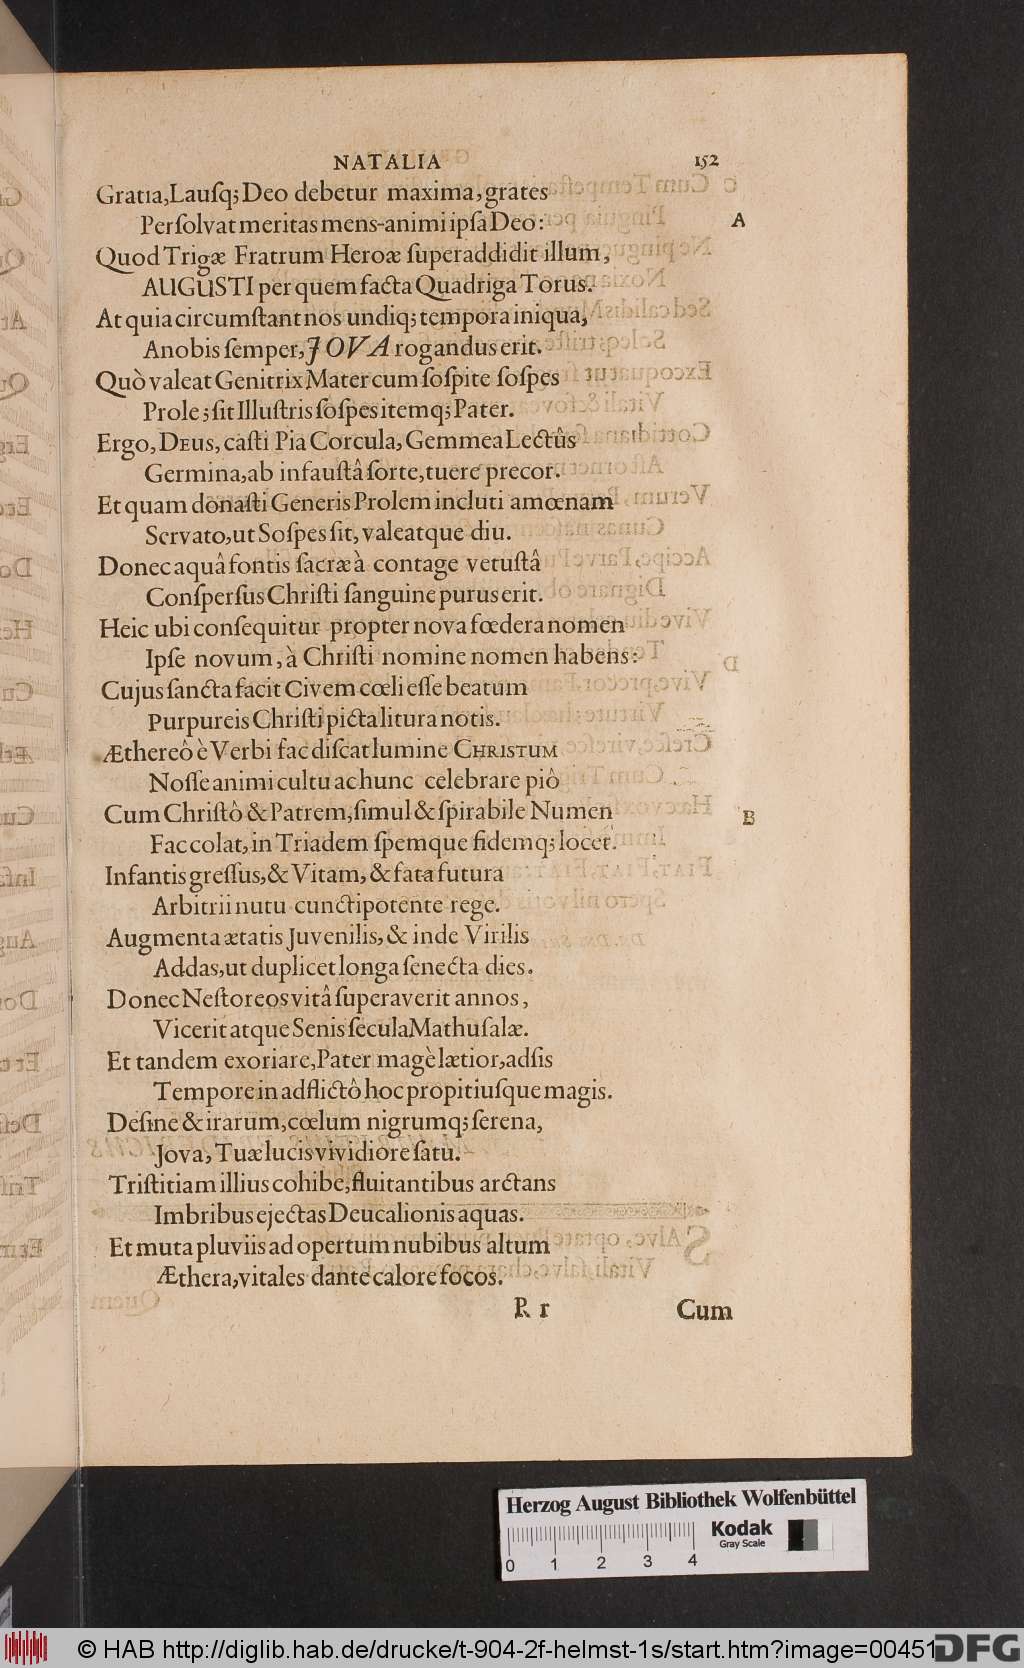 NATALIA 152
Gratia,Lauſq; Deo debetur maxima, grates
Perſolvat meritas mens-animi ipſa Deo: A
Quod Trigæ Fratrum Heroæ ſuperaddidit illum,
AUGUSTI per quem facta Quadriga Torus.
At quia circumſtant nos undiq; tempora iniqua,
A nobis ſemper, JOVA rogandus erit.
Quò valeat Genitrix Mater cum ſoſpite ſoſpes
Prole; ſit Illuſtris ſoſpes itemq; Pater.
Ergo, DEUS, caſti Pia Corcula, Gemmea Lectûs
Germina, ab infauſtâ ſorte, tuere precor.
Et quam donaſti Generis Prolem incluti amœnam
Servato, ut Soſpes ſit, valeatque diu.
Donec aquâ fontis ſacræ à contage vetuſtâ
Conſperſus Chriſti ſanguine purus erit.
Heic ubi conſequitur propter nova fœdera nomen
Ipſe novum, à Chriſti nomine nomen habens:
Cujus ſancta facit Civem cœli eſſe beatum
Purpureis Chriſti picta litura notis.
Æthereô è Verbi fac diſcat lumine CHRISTUM
Noſſe animi cultu ac hunc celebrare piô
Cum Chriſtô & Patrem, ſimul & ſpirabile Numen B
Fac colat, in Triadem ſpemque fidemq; locet.
Infantis greſſus, & Vitam, & fata futura
Arbitrii nutu cunctipotente rege.
Augmenta ætatis Juvenilis, & inde Virilis
Addas, ut duplicet longa ſenecta dies.
Donec Neſtoreos vitâ ſuperaverit annos,
Vicerit atque Senis ſecula Mathuſalæ.
Et tandem exoriare, Pater magè lætior, adſis
Tempore in adflictô hoc propitiuſque magis.
Deſine & irarum, cœlum nigrumq; ſerena,
Jova, Tuæ lucis vividiore ſatu.
Triſtitiam illius cohibe, fluitantibus arctans
Imbribus ejectas Deucalionis aquas.
Et muta pluviis ad opertum nubibus altum
Æthera, vitales dante calore focos.
R r Cum
Herzog August Bibliothek Wolfenbüttel
Kodak
Gray Scale
0 1 2 3 4
© HAB http://diglib.hab.de/drucke/t-904-2f-helmst-1s/start.htm?image=00451
DFG